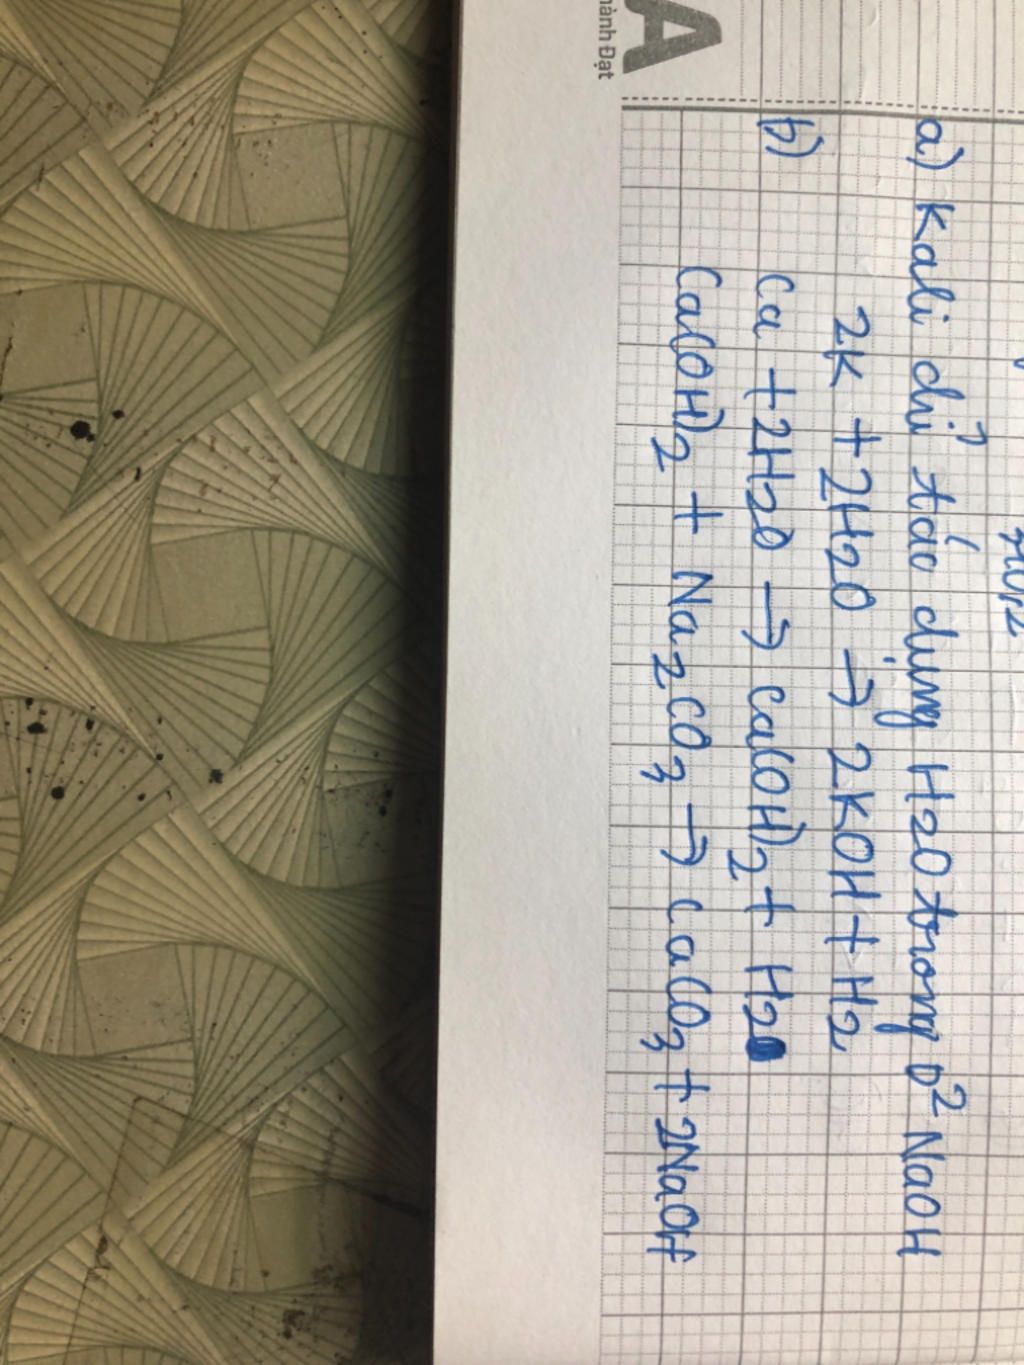 A
hành Đạt
a) Kali chỉ tác dụng H2O trong D² NaOH
2K + 2H2O → 2KOH + H2
b) Ca + 2H2O → Ca(OH)2 + H2
Ca(OH)2 + Na2CO3 → CaCO3 + 2NaOH